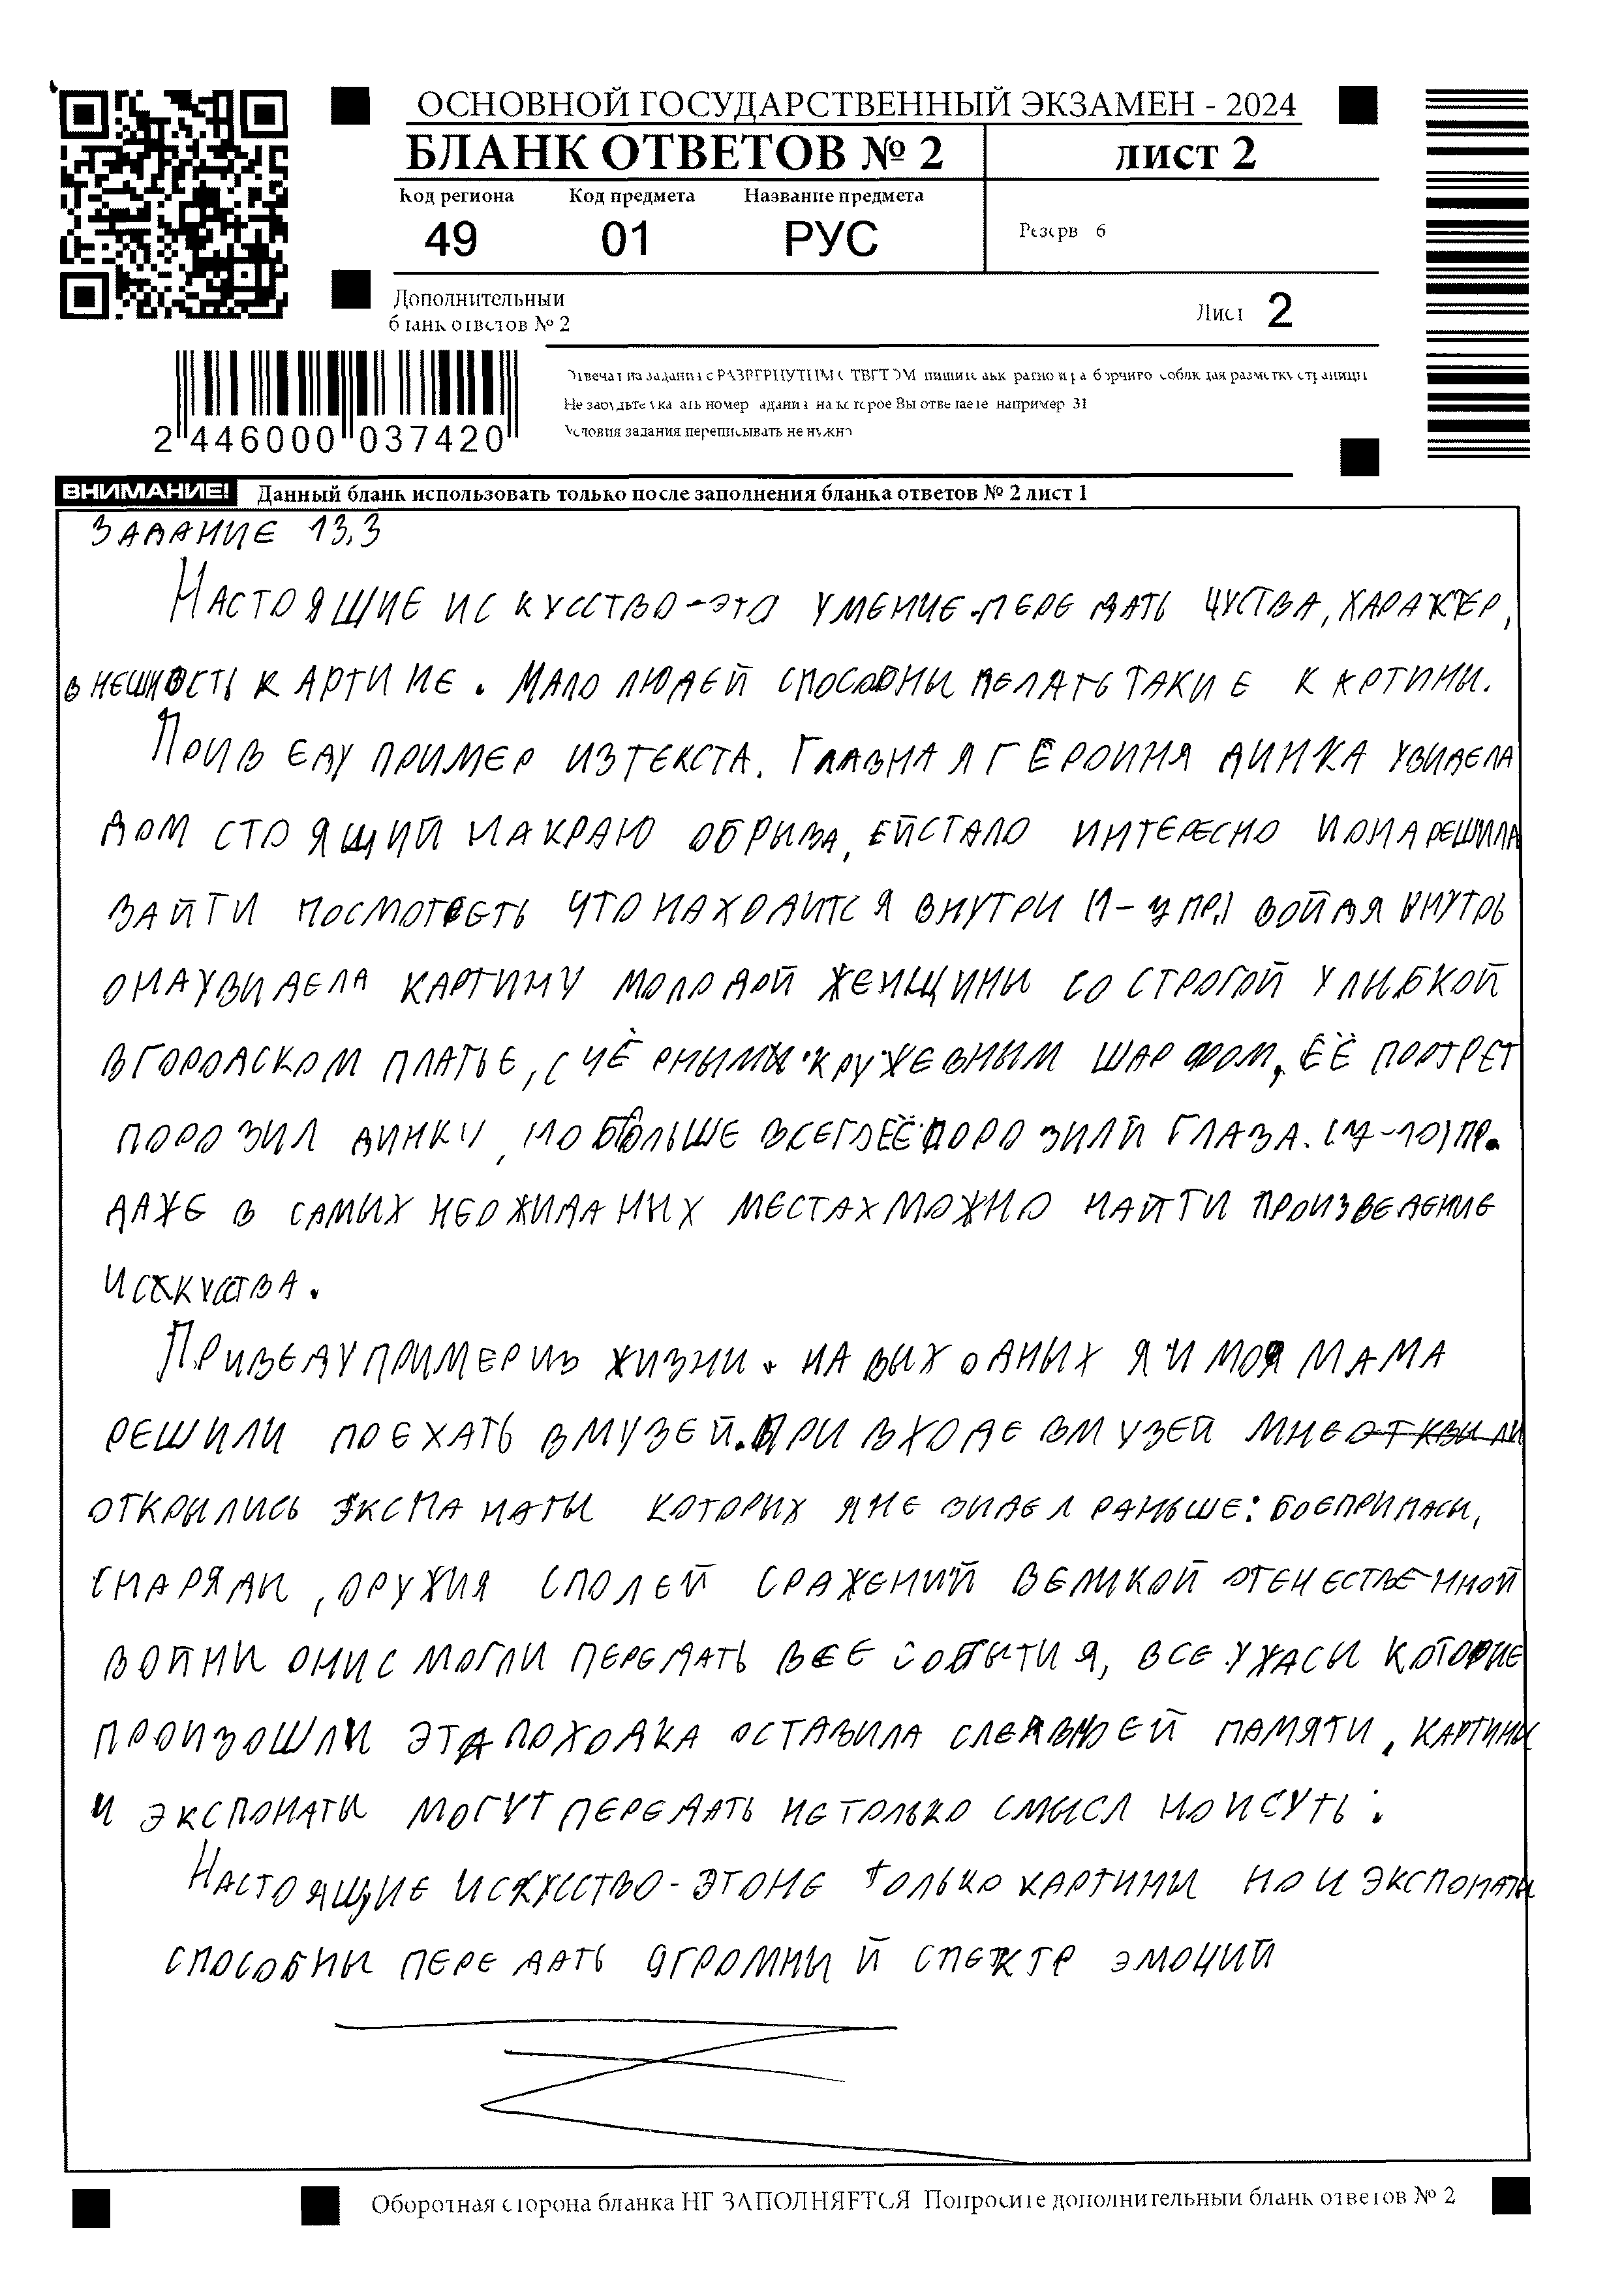 ОСНОВНОЙ ГОСУДАРСТВЕННЫЙ ЭКЗАМЕН - 2024
БЛАНК ОТВЕТОВ № 2
лист 2
Код региона Код предмета Название предмета
49 01 РУС
Резерв 6
Дополнительный
бланк ответов № 2
Лист 2
Отвечая на задания с РАЗВЕРНУТЫМ ОТВЕТОМ пишите аккуратно и разборчиво соблюдая разметку страницы
Не забудьте указать номер задания на которое Вы отвечаете например 31
Условия задания переписывать не нужно
2 446000 037420
ВНИМАНИЕ! Данный бланк использовать только после заполнения бланка ответов № 2 лист 1
ЗАДАНИЕ 13.3
НАСТОЯЩИЕ ИСКУССТВО-ЭТО УМЕНИЕ ПЕРЕДАТЬ ЧУСТВА, ХАРАКТЕР,
ВНЕШНОСТЬ КАРТИНЕ. МАЛО ЛЮДЕЙ СПОСОБНЫ ДЕЛАТЬ ТАКИЕ КАРТИНЫ.
ПРИВЕДУ ПРИМЕР ИЗ ТЕКСТА. ГЛАВНАЯ ГЕРОИНЯ ДИНКА УВИДЕЛА
ДОМ СТОЯЩИЙ НА КРАЮ ОБРЫВА, ЕЙ СТАЛО ИНТЕРЕСНО И ОНА РЕШИЛА
ЗАЙТИ ПОСМОТРЕТЬ ЧТО НАХОДИТСЯ ВНУТРИ (1-4 ПР.) ВОЙДЯ ВНУТРЬ
ОНА УВИДЕЛА КАРТИНУ МОЛОДОЙ ЖЕНЩИНЫ СО СТРОГОЙ УЛЫБКОЙ
В ГОРОДСКОМ ПЛАТЬЕ, С ЧЁРНЫМ КРУЖЕВНЫМ ШАРФОМ, ЕЁ ПОРТРЕТ
ПОРОЗИЛ ДИНКУ, НО БОЛЬШЕ ВСЕГО ЕЁ ПОРОЗИЛИ ГЛАЗА. (7-10) ПР.
ДАЖЕ В САМЫХ НЕОЖИДАНЫХ МЕСТАХ МОЖНО НАЙТИ ПРОИЗВЕДЕНИЕ
ИСКУССТВА.
ПРИВЕДУ ПРИМЕР ИЗ ЖИЗНИ. НА ВЫХОДНЫХ Я И МОЯ МАМА
РЕШИЛИ ПОЕХАТЬ В МУЗЕЙ. ПРИ ВХОДЕ В МУЗЕЙ МНЕ
ОТКРЫЛИСЬ ЭКСПАНАТЫ КОТОРЫХ Я НЕ ВИДЕЛ РАНЬШЕ: БОЕПРИПАСЫ,
СНАРЯДЫ, ОРУЖИЯ С ПОЛЕЙ СРАЖЕНИЙ ВЕЛИКОЙ ОТЕЧЕСТВЕННОЙ
ВОЙНЫ ОНИ СМОГЛИ ПЕРЕДАТЬ ВСЕ СОБЫТИЯ, ВСЕ УЖАСЫ КОТОРЫЕ
ПРОИЗОШЛИ ЭТА ПОХОДКА ОСТАВИЛА СЛЕД В МОЕЙ ПАМЯТИ, КАРТИНЫ
И ЭКСПОНАТЫ МОГУТ ПЕРЕДАТЬ НЕ ТОЛЬКО СМЫСЛ НО И СУТЬ.
НАСТОЯЩИЕ ИСКУССТВО-ЭТО НЕ ТОЛЬКО КАРТИНЫ НО И ЭКСПОНАТЫ
СПОСОБНЫ ПЕРЕДАТЬ ОГРОМНЫЙ СПЕКТР ЭМОЦИЙ
Оборотная сторона бланка НЕ ЗАПОЛНЯЕТСЯ Попросите дополнительный бланк ответов № 2